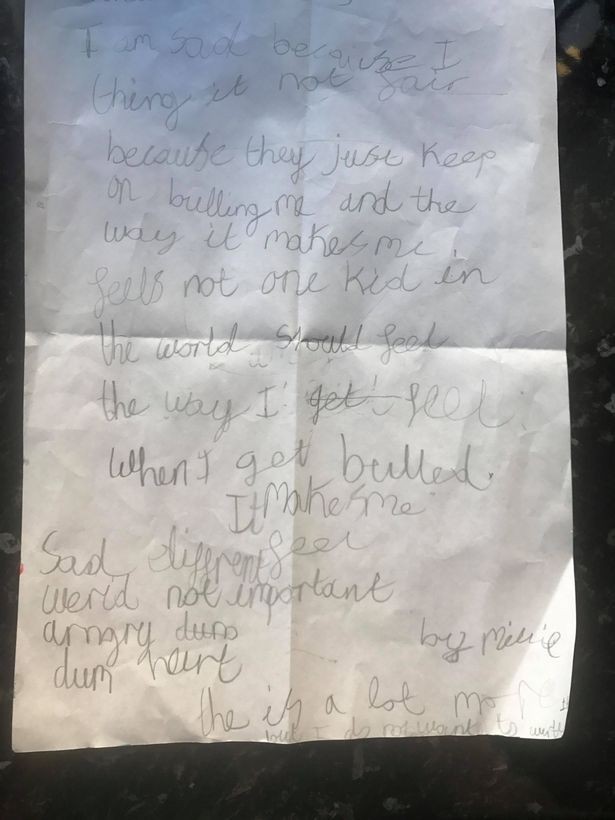 I am sad because I
thing it not fair
because they just keep
on bulling me and the
way it makes me
feels not one kid in
the world should feel
the way I get feel.
When I get bulled.
It Makes me
feel
Sad different
werid not important
arngry dum
by Millie
dum heurt
the is a lot more
but I do not want to writ